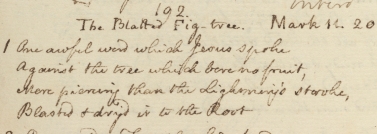 192
The Blasted Fig-tree. Mark 11. 20
1 One awful word which Jesus spoke
Against the tree which bore no fruit,
More piercing than the lightning's stroke,
Blasted & dry'd it to the Root